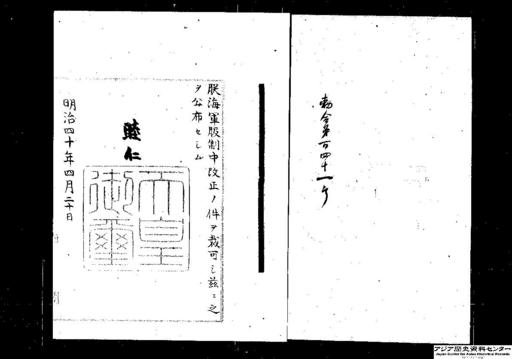 勅令第百四十一号
朕海軍服制中改正ノ件ヲ裁可シ茲ニ之
ヲ公布セシム
睦仁
天皇
御璽
明治四十年四月二十日
アジア歴史資料センター
Japan Center for Asian Historical Records